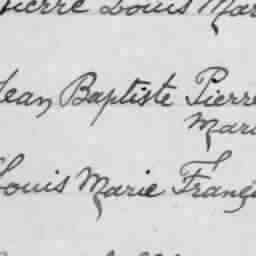 Pierre Louis Mar
Jean Baptiste Pierre
Mari
Louis Marie Franç